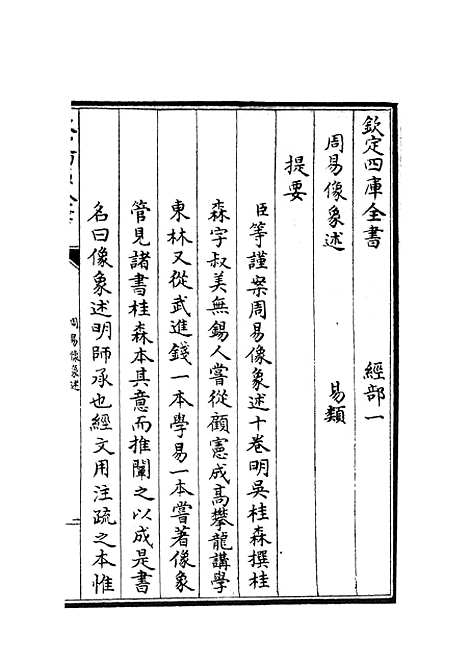 欽定四庫全書　經部一
周易像象述　易類
提要
臣等謹案周易像象述十卷明吳桂森撰桂
森字叔美無錫人嘗從顧憲成高攀龍講學
東林又從武進錢一本學易一本嘗著像象
管見諸書桂森本其意而推闡之以成是書
名曰像象述明師承也經文用注疏之本惟
周易像象述